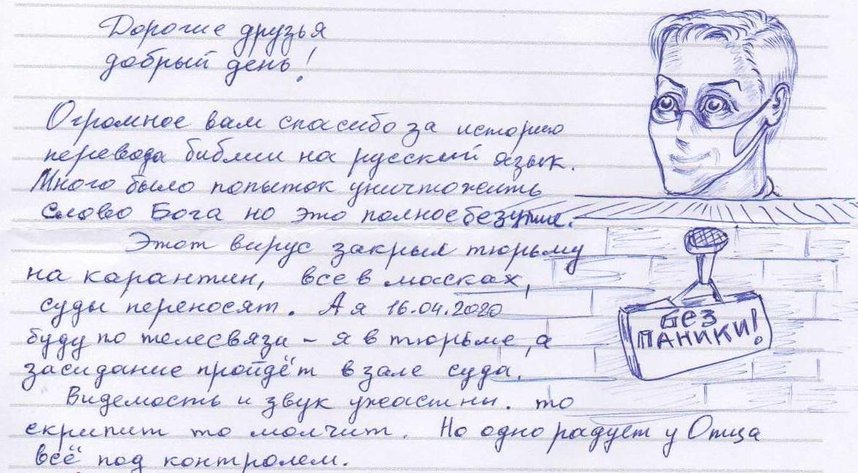 Дорогие друзья
добрый день!
Огромное вам спасибо за историю
перевода библии на русский язык.
Много было попыток уничтожить
слово Бога но это полное безумие.
Этот вирус закрыл тюрьму
на карантин, все в масках,
суды переносят. А я 16.04.2020
буду по телесвязи - я в тюрьме, а
заседание пройдёт в зале суда.
Видемость и звук ужастны. то
скрипит то молчит. Но одно радует у Отца
всё под контролем.
БЕЗ
ПАНИКИ!